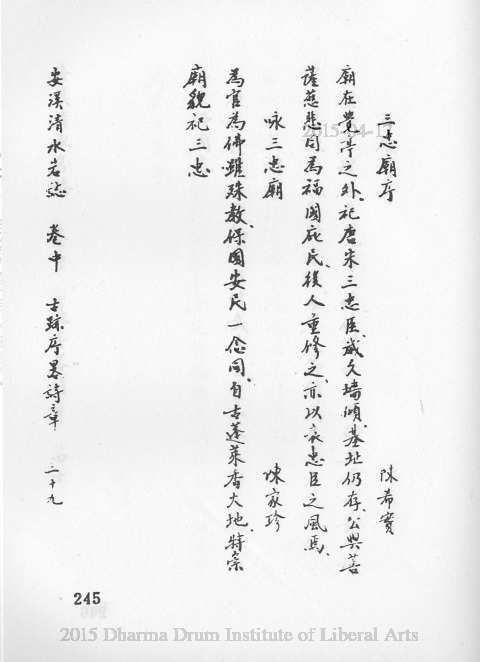 三忠廟序 陳希實
廟在覺亭之外、祀唐宋三忠臣、歲久墻傾、基址仍存、公與菩
薩慈悲同為福國庇民、後人重修之、亦以表忠臣之風焉、
咏三忠廟 陳家珍
為官為佛雖殊教、保國安民一念同、自古蓬萊香火地、特崇
廟貌祀三忠
安溪清水岩誌 卷中 古蹟序畧詩章 三十九
245
2015 Dharma Drum Institute of Liberal Arts